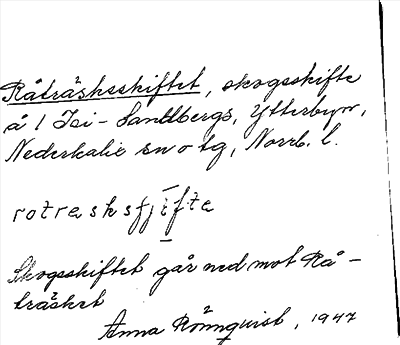 Råträskskiftet, skogsskifte
å 1 Isi-Sandbergs, Ytterbyn,
Nederkalix sn o tg, Norrb. l.
rotresksfjifte
Skogsskiftet går ned mot Rå-
träsket
Anna Rönnquist, 1947